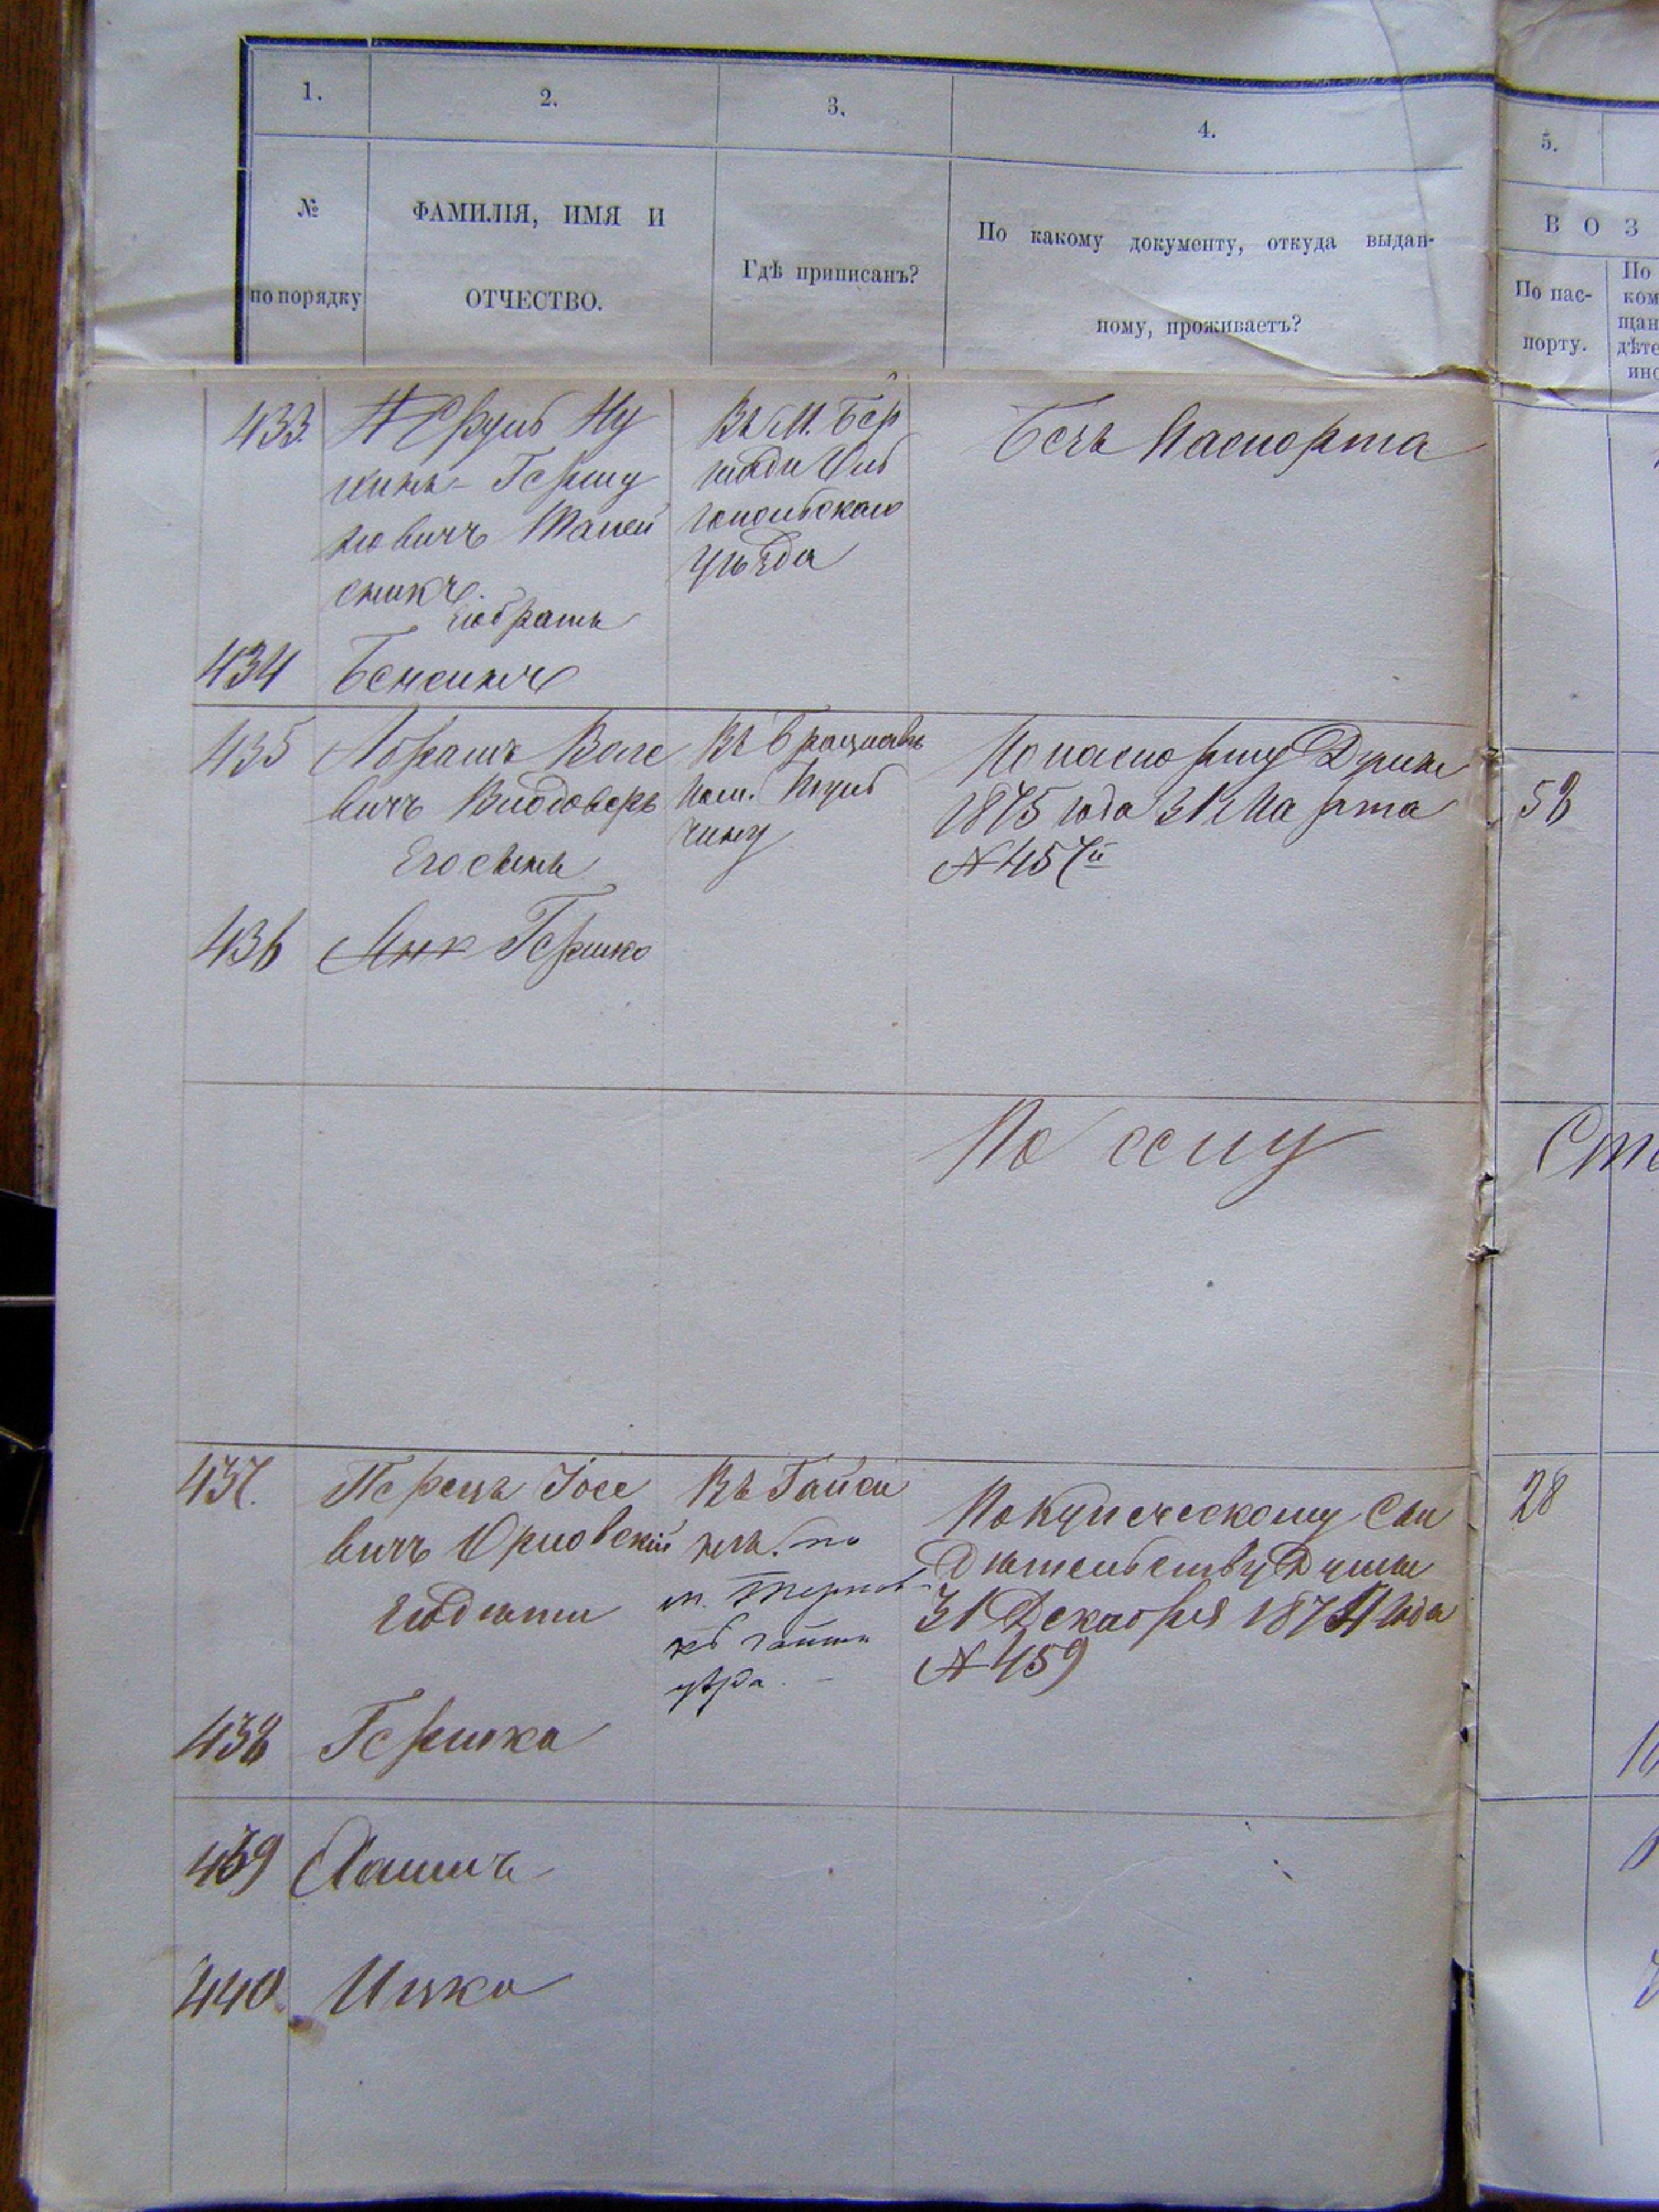 1.
2.
3.
4.
5.
№
по порядку
ФАМИЛІЯ, ИМЯ И
ОТЧЕСТВО.
Гдѣ приписанъ?
По какому документу, откуда выдан-
ному, проживаетъ?
В О З
По пас-
порту.
По
ком
щан
дѣте
ино
433.
Сруль Ну
химъ-Гершу
новичъ
Въ М. Бер
шади Оль
гопольскаго
уѣзда
Безъ Паспорта
его братъ
434
Бенсинъ
435
Абрамъ Воль
вичъ
Его сынъ
Въ Брацлавѣ
По паспорту Думы
1875 года 31 Марта
№ 457й
58
436
Янк Гершко
По сему
437.
Перецъ Іосе
вичъ Юрковскій
его дѣти
Въ Гайси
нѣ. по
м. Тернов
кѣ
уѣзда.
По Купеческому Сви
дѣтельству Думы
31 Декабря 1874 года
№ 459
28
438
Гершка
439
Хаимъ
440
Ицко